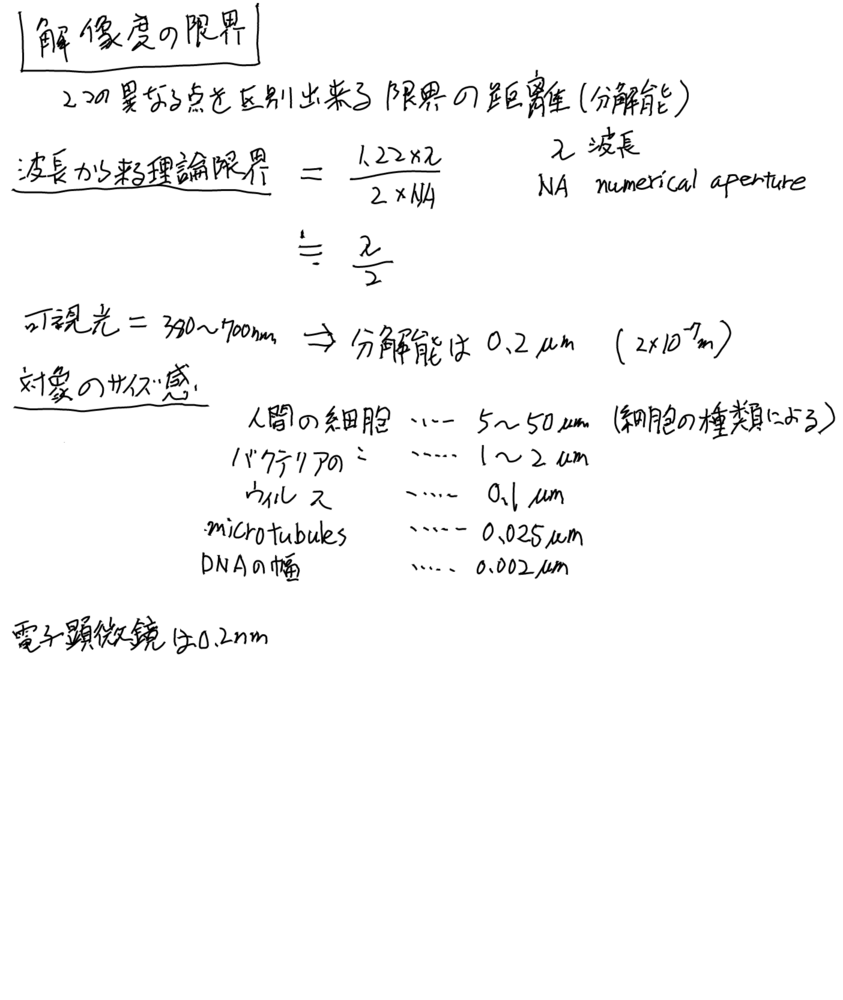 解像度の限界
2つの異なる点を区別出来る限界の距離(分解能)
波長から来る理論限界 = 1.22×λ / 2×NA
λ 波長
NA numerical aperture
≒ λ/2
可視光 = 380~700nm ⇒ 分解能は 0.2 μm (2×10⁻⁷m)
対象のサイズ感
人間の細胞 ····· 5~50μm (細胞の種類による)
バクテリアの 〃 ····· 1~2 μm
ウィルス ····· 0.1 μm
microtubules ····· 0.025μm
DNAの幅 ····· 0.002μm
電子顕微鏡は0.2nm